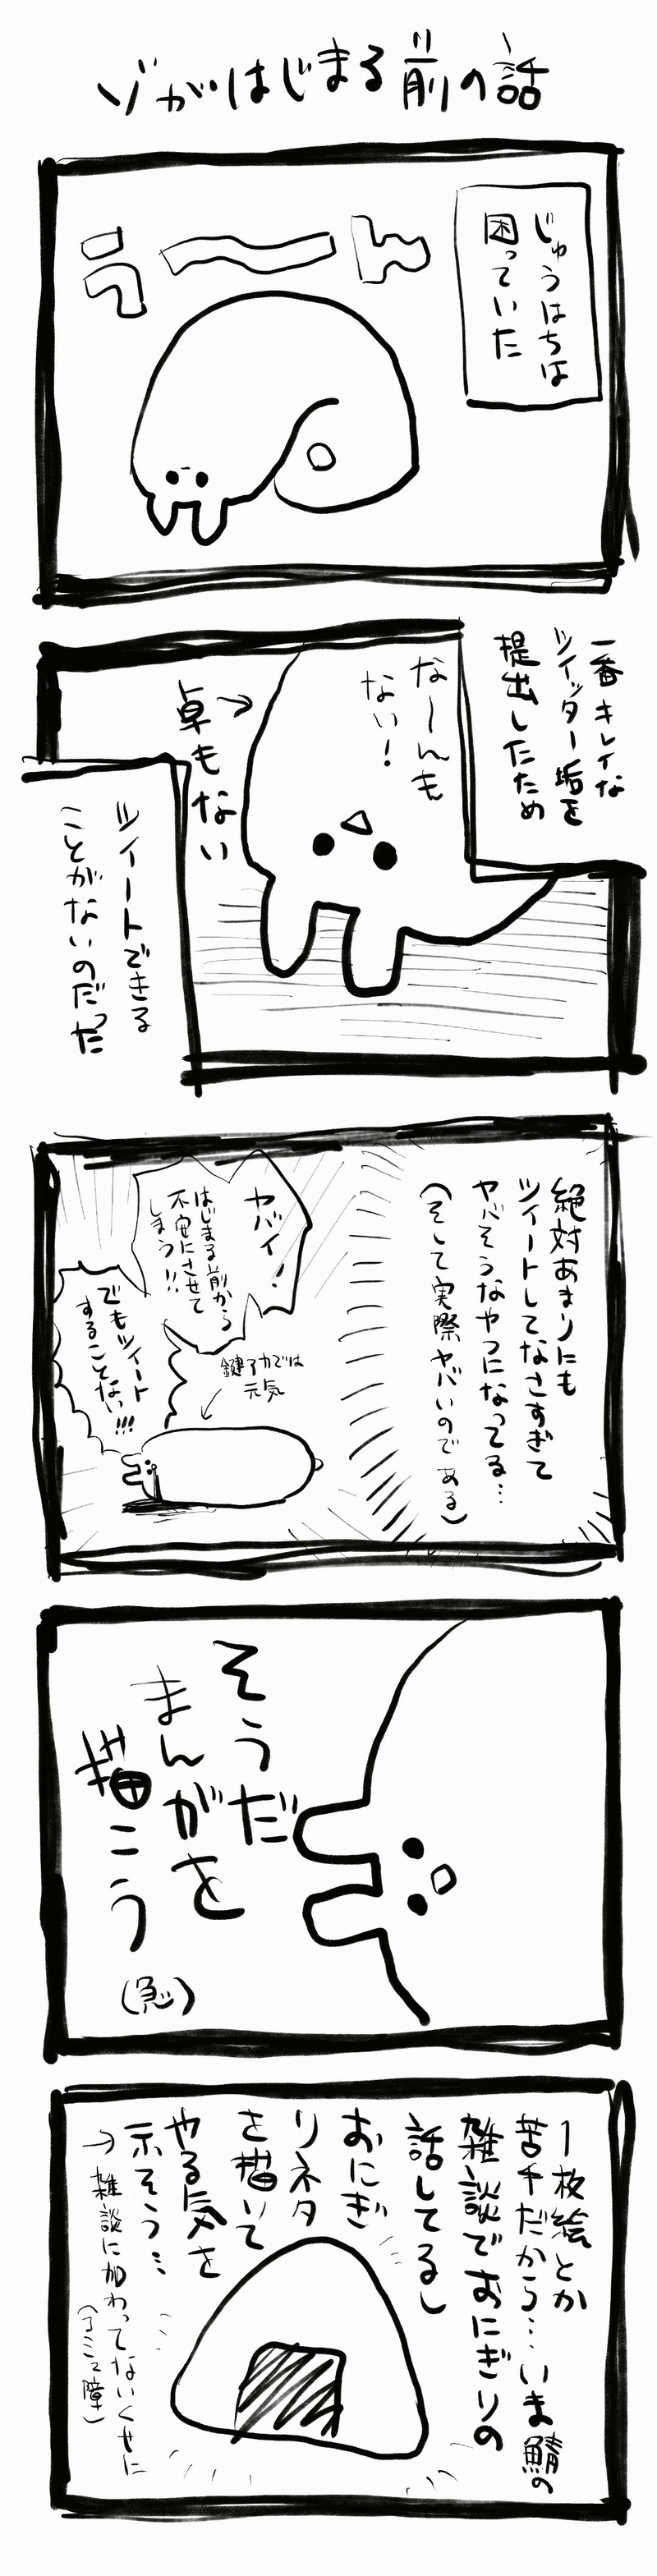 ゾがはじまる前の話
じゅうはちは
困っていた
うーーん
一番キレイな
ツイッター垢を
提出したため
なーんも
ない!
→
卓もない
ツイートできる
ことがないのだった
絶対あまりにも
ツイートしてなさすぎて
ヤバそうなやつになってる…
(そして実際ヤバいのである)
ヤバイ!
はじまる前から
不安にさせて
しまう!!
鍵アカでは
元気
でもツイート
することない!!!
そうだ
まんがを
描こう
(急)
1枚絵とか
苦手だから…いま鯖の
雑談でおにぎりの
話してるし
おにぎ
りネタ
を描いて
やる気を
示そう…
→雑談に加わってないくせに
(コミュ障)